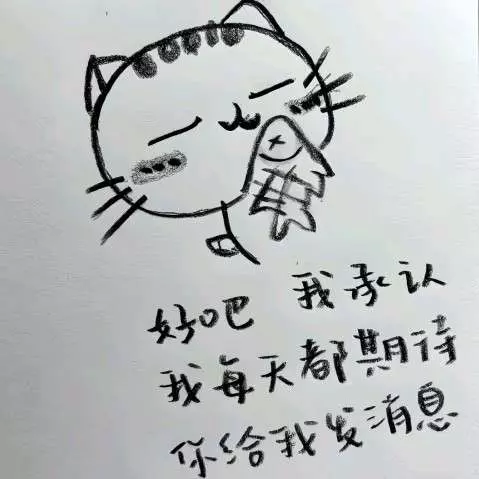 好吧 我承认
我每天都期待
你给我发消息